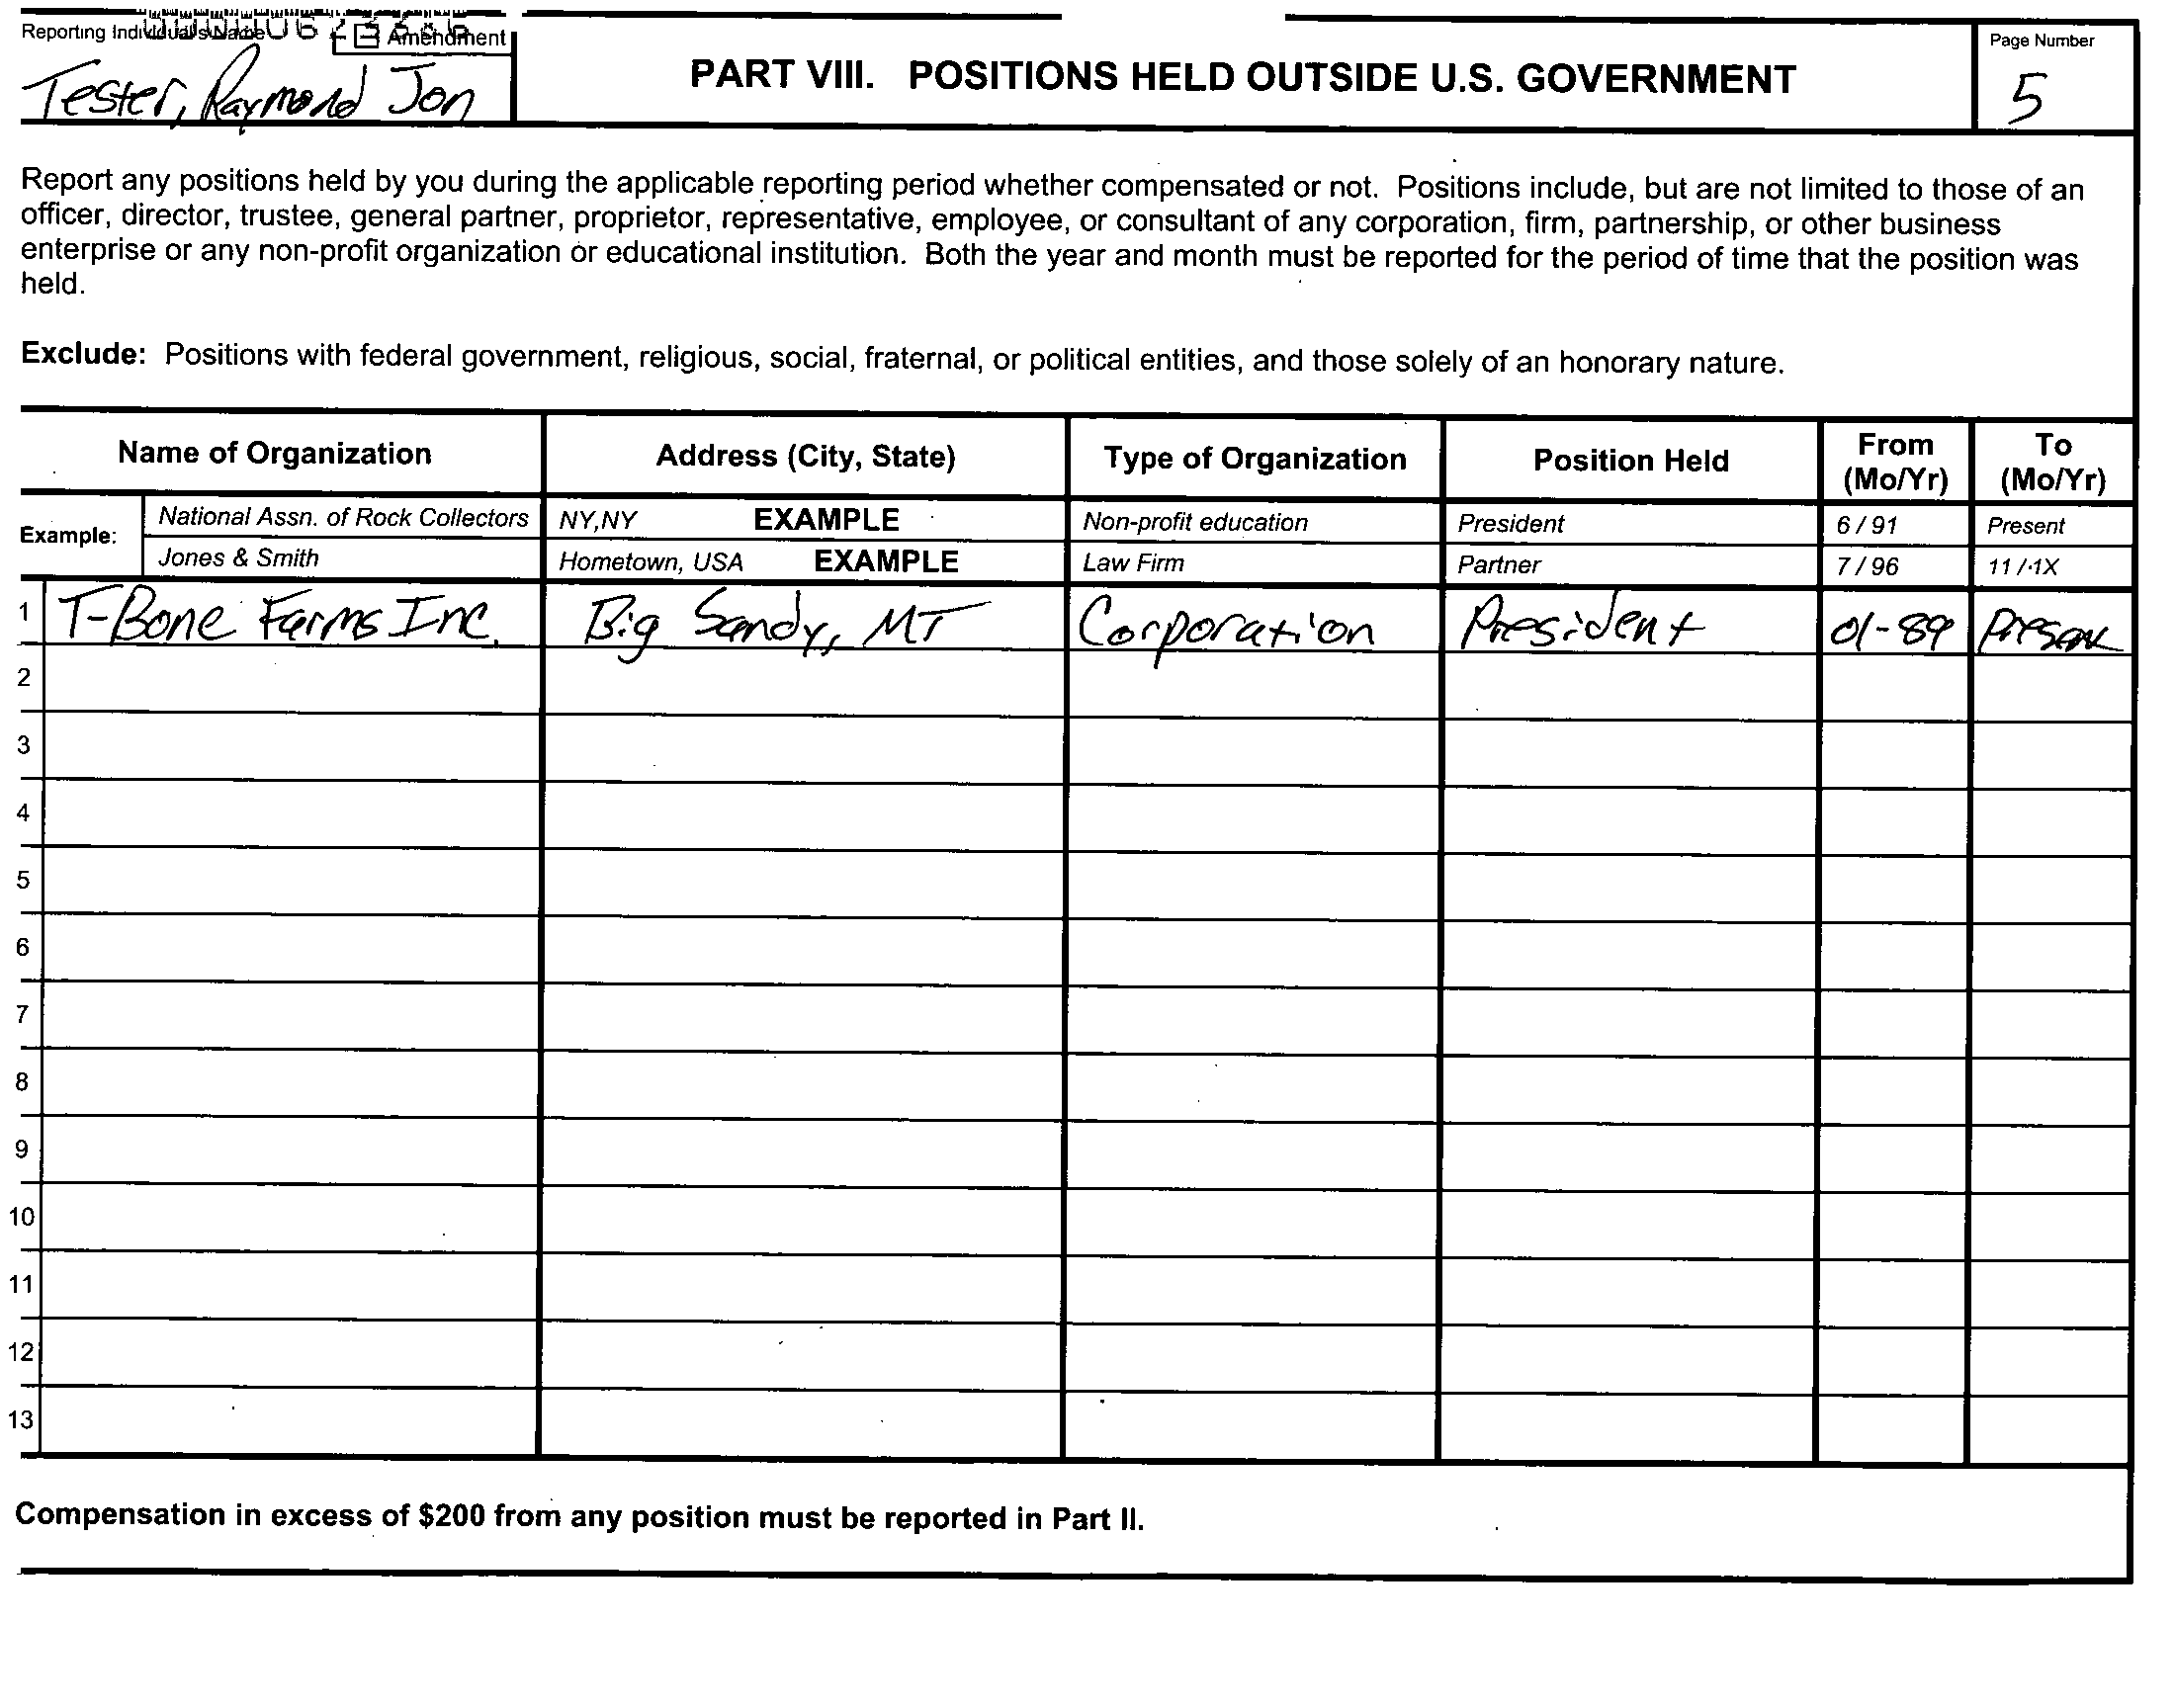 Reporting Individual's Name Amendment
Tester, Raymond Jon
PART VIII. POSITIONS HELD OUTSIDE U.S. GOVERNMENT
Page Number
5
Report any positions held by you during the applicable reporting period whether compensated or not. Positions include, but are not limited to those of an
officer, director, trustee, general partner, proprietor, representative, employee, or consultant of any corporation, firm, partnership, or other business
enterprise or any non-profit organization or educational institution. Both the year and month must be reported for the period of time that the position was
held.
Exclude: Positions with federal government, religious, social, fraternal, or political entities, and those solely of an honorary nature.
Name of Organization Address (City, State) Type of Organization Position Held From (Mo/Yr) To (Mo/Yr)
Example: National Assn. of Rock Collectors NY,NY EXAMPLE Non-profit education President 6 / 91 Present
Jones & Smith Hometown, USA EXAMPLE Law Firm Partner 7 / 96 11 / 1X
1 T-Bone Farms Inc. Big Sandy, MT Corporation President 01-89 Present
2
3
4
5
6
7
8
9
10
11
12
13
Compensation in excess of $200 from any position must be reported in Part II.